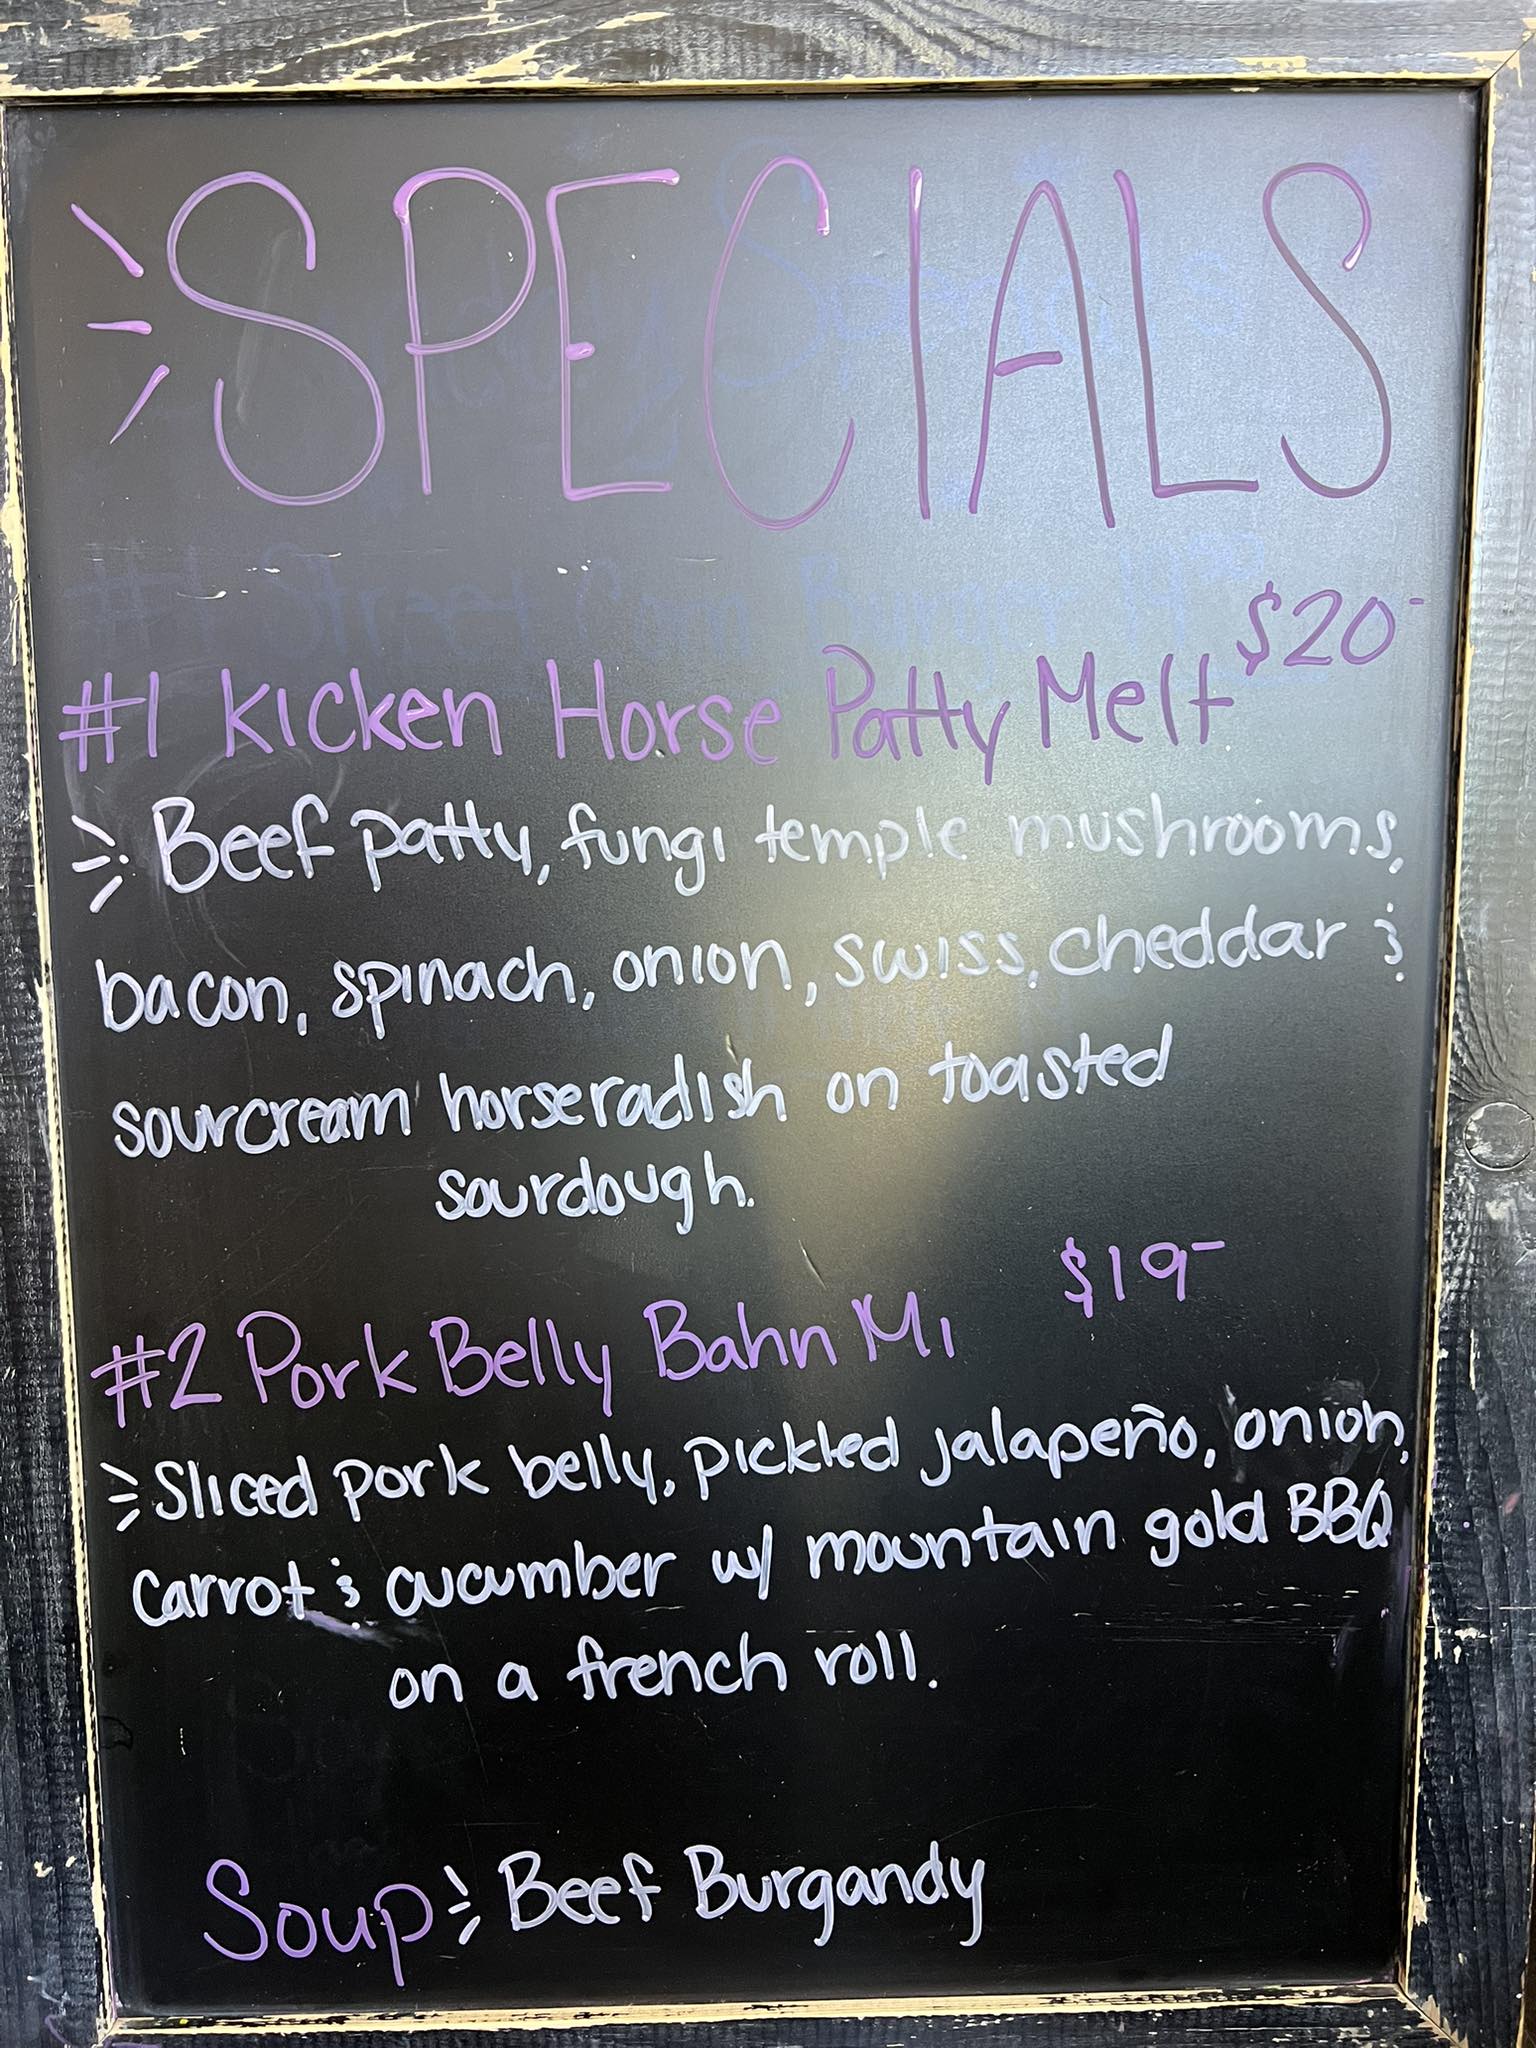 SPECIALS
#1 Kicken Horse Patty Melt $20-
Beef patty, fungi temple mushrooms,
bacon, spinach, onion, swiss, cheddar &
sourcream horseradish on toasted
sourdough.
#2 Pork Belly Bahn Mi $19-
Sliced pork belly, pickled jalapeño, onion,
carrot & cucumber w/ mountain gold BBQ
on a french roll.
Soup Beef Burgandy